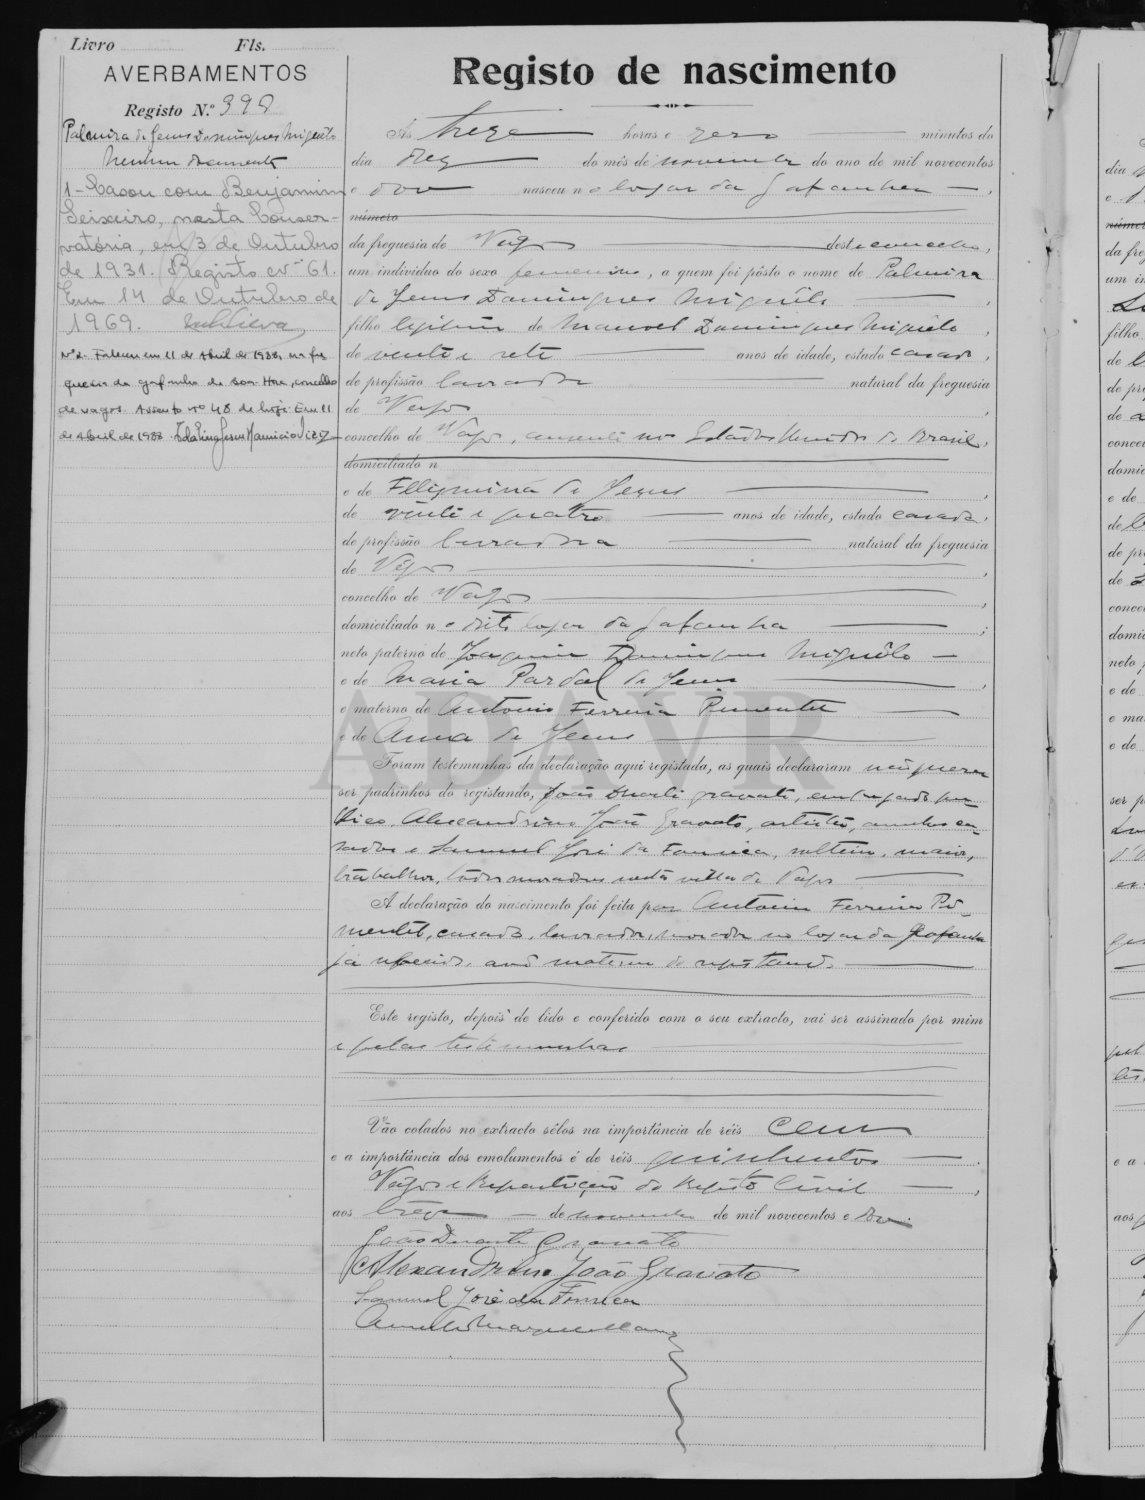 Livro Fls.
AVERBAMENTOS
Registo N.º 398
Palmira de Jesus Domingues Miguéis
Nenhum documento
1- Casou com Benjamim
Seixeiro, nesta Conser-
vatória, em 3 de Outubro
de 1931. Registo nº 61.
Em 14 de Outubro de
1969.
Nº 2. Faleceu em 11 de Abril de 1988, na fre
guesia da gafanha da Boa-Hora, concelho
de vagos. Assento nº 48 de hoje. Em 11
de Abril de 1988.
Registo de nascimento
Ás treze horas e zero minutos do
dia dez do mês de novembro do ano de mil novecentos
e doze nasceu no logar da Gafanha
número
da freguesia de Vagos deste concelho,
um individuo do sexo femenino, a quem foi pôsto o nome de Palmira
de Jesus Domingues Miguéis
filho legitimo de Manoel Domingues Miguéis
de vinte e sete anos de idade, estado casado,
de profissão lavrador natural da freguesia
de Vagos
concelho de Vagos, ausente nos Estados Unidos do Brasil,
domiciliado n
e de Felismina de Jesus
de vinte e quatro anos de idade, estado casada,
de profissão lavradora natural da freguesia
de Vagos
concelho de Vagos
domiciliado no dito logar da Gafanha ;
neto paterno de Joaquim Domingues Miguéis
e de Maria Pardal de Jesus
e materno de Antonio Ferreira Pimentel
e de Anna de Jesus
ADAVR
Foram testemunhas da declaração aqui registada, as quais declararam não querer
ser padrinhos do registando, João Duarte Gravato, empregado pu
blico, Alexandrino João Gravato, artista, ambos ca
sados e Samuel José da Fonseca, solteiro, maior,
trabalhor, todos moradores nesta villa de Vagos
A declaração do nascimento foi feita por Antonio Ferreira Pi-
mentel, casado, lavrador, morador no logar da Gafanha
já referido, avô materno do registando.
Este registo, depois de lido e conferido com o seu extracto, vai ser assinado por mim
e pelas testemunhas
Vão colados no extracto sêlos na importância de réis cem
e a importância dos emolumentos é de réis quinhentos
Vagos e Repartição do Registo Civil
aos treze de novembro de mil novecentos e doze.
João Duarte Gravato
Alexandrino João Gravato
Samuel José da Fonseca